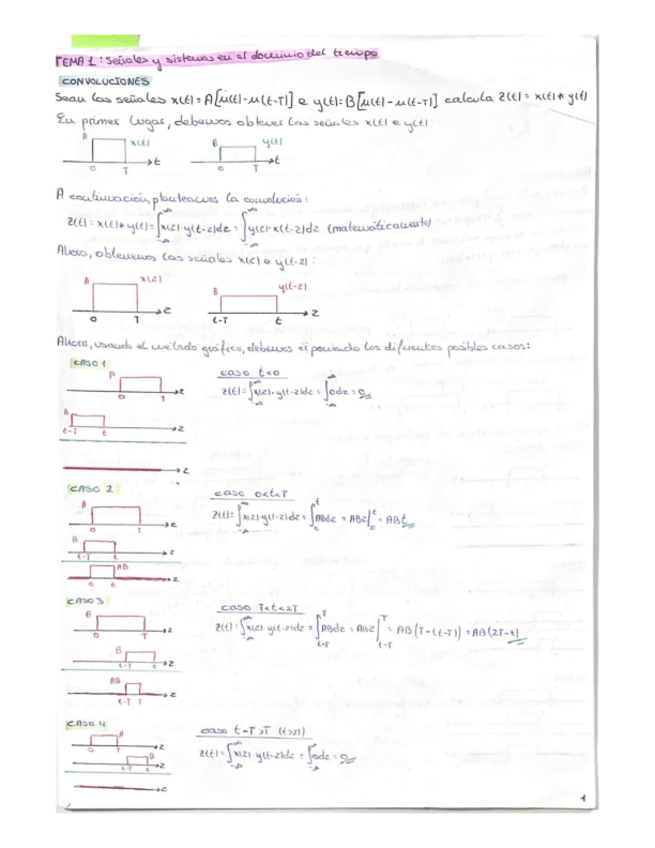 TEMA 1: Señales y sistemas en el dominio del tiempo
CONVOLUCIONES
Sean las señales x(t) = A[μ(t)-μ(t-T)] e y(t)=B[μ(t)-μ(t-T)] calcula z(t) = x(t)*y(t)
En primer lugar, debemos obtener las señales x(t) e y(t):
A x(t) B y(t)
0 T t 0 T t
A continuación, planteamos la convolución:
z(t) = x(t)*y(t) = ∫_{-∞}^{∞} x(z)·y(t-z)dz = ∫_{-∞}^{∞} y(z)·x(t-z)dz (matemáticamente)
Ahora, obtenemos las señales x(z) e y(t-z):
A x(z) B y(t-z)
0 T z t-T t z
Ahora, usando el método gráfico, debemos ir poniendo los diferentes posibles casos:
CASO 1
caso t<0
z(t) = ∫_{-∞}^{∞} x(z)·y(t-z)dz = ∫_{-∞}^{∞} 0dz = 0
0 T z
B
t-T t z
z
CASO 2
caso 0<t<T
z(t) = ∫_{-∞}^{∞} x(z)·y(t-z)dz = ∫_0^t ABdz = ABz|_0^t = ABt
A
0 T z
B
t-T t z
AB
0 t z
CASO 3
caso T<t<2T
z(t) = ∫_{-∞}^{∞} x(z)·y(t-z)dz = ∫_{t-T}^{T} ABdz = ABz|_{t-T}^{T} = AB(T-(t-T)) = AB(2T-t)
A
0 T z
B
t-T t z
AB
t-T T z
CASO 4
caso t-T>T (t>2T)
z(t) = ∫_{-∞}^{∞} x(z)·y(t-z)dz = ∫_{-∞}^{∞} 0dz = 0
A
0 T z
B
t-T t z
z
1